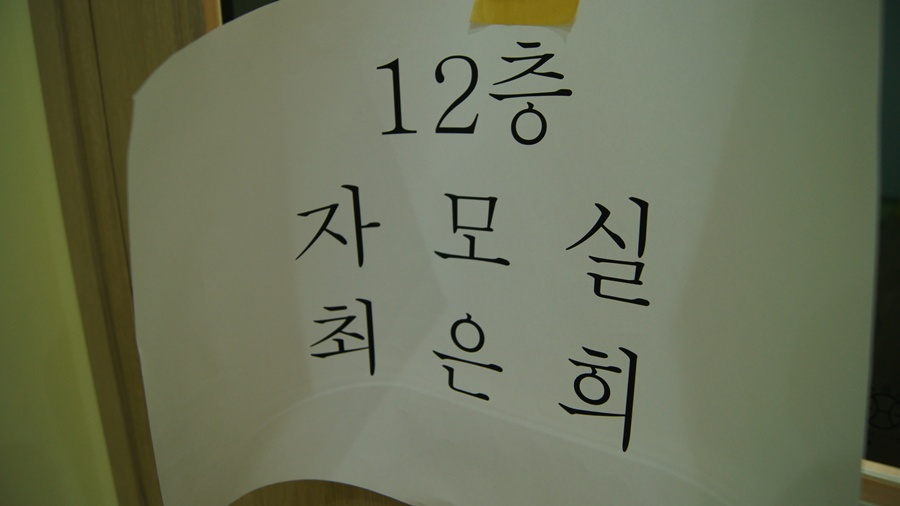 12층
자 모 실
최 은 희